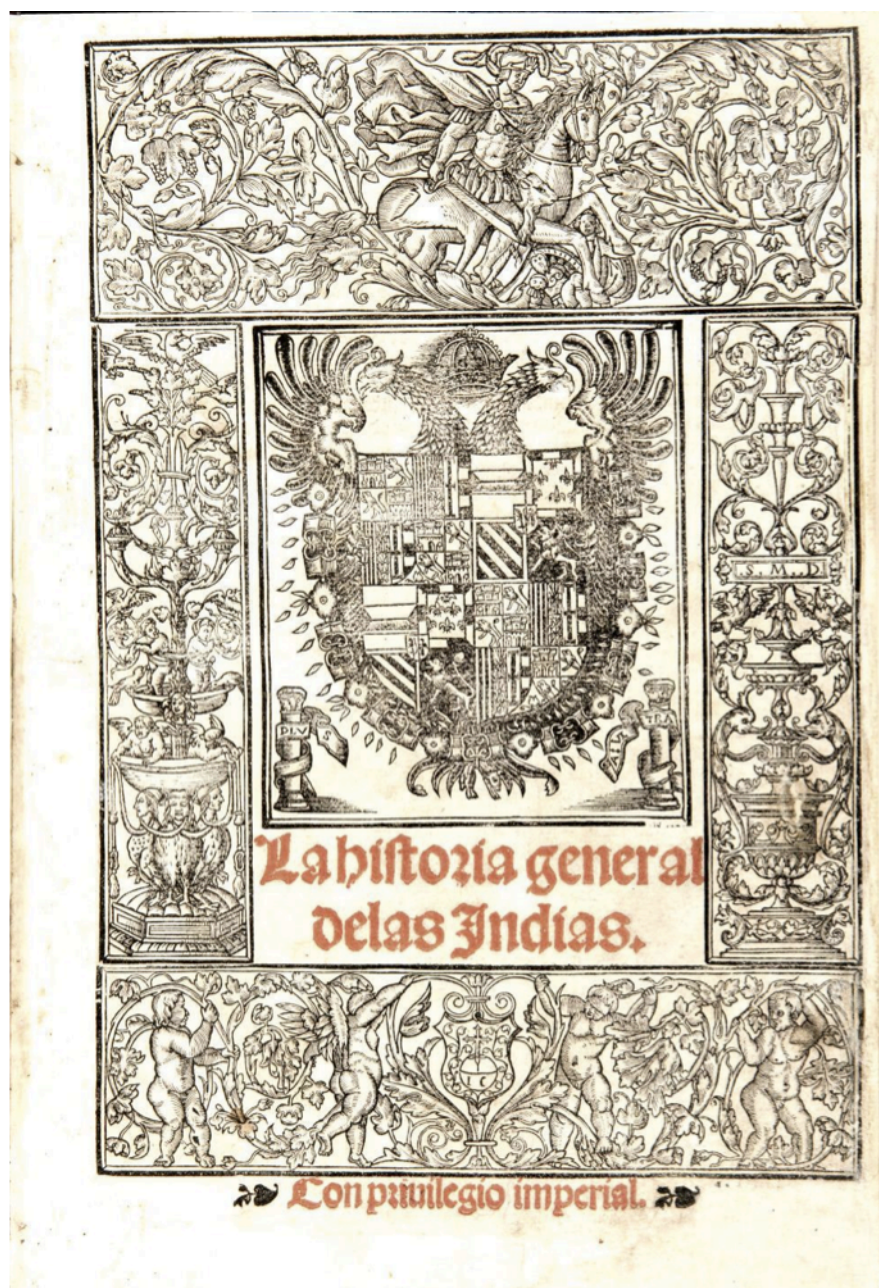 .S.M.D.
PLVS
VLTRA
La historia general
delas Indias.
I C
Con priuilegio imperial.